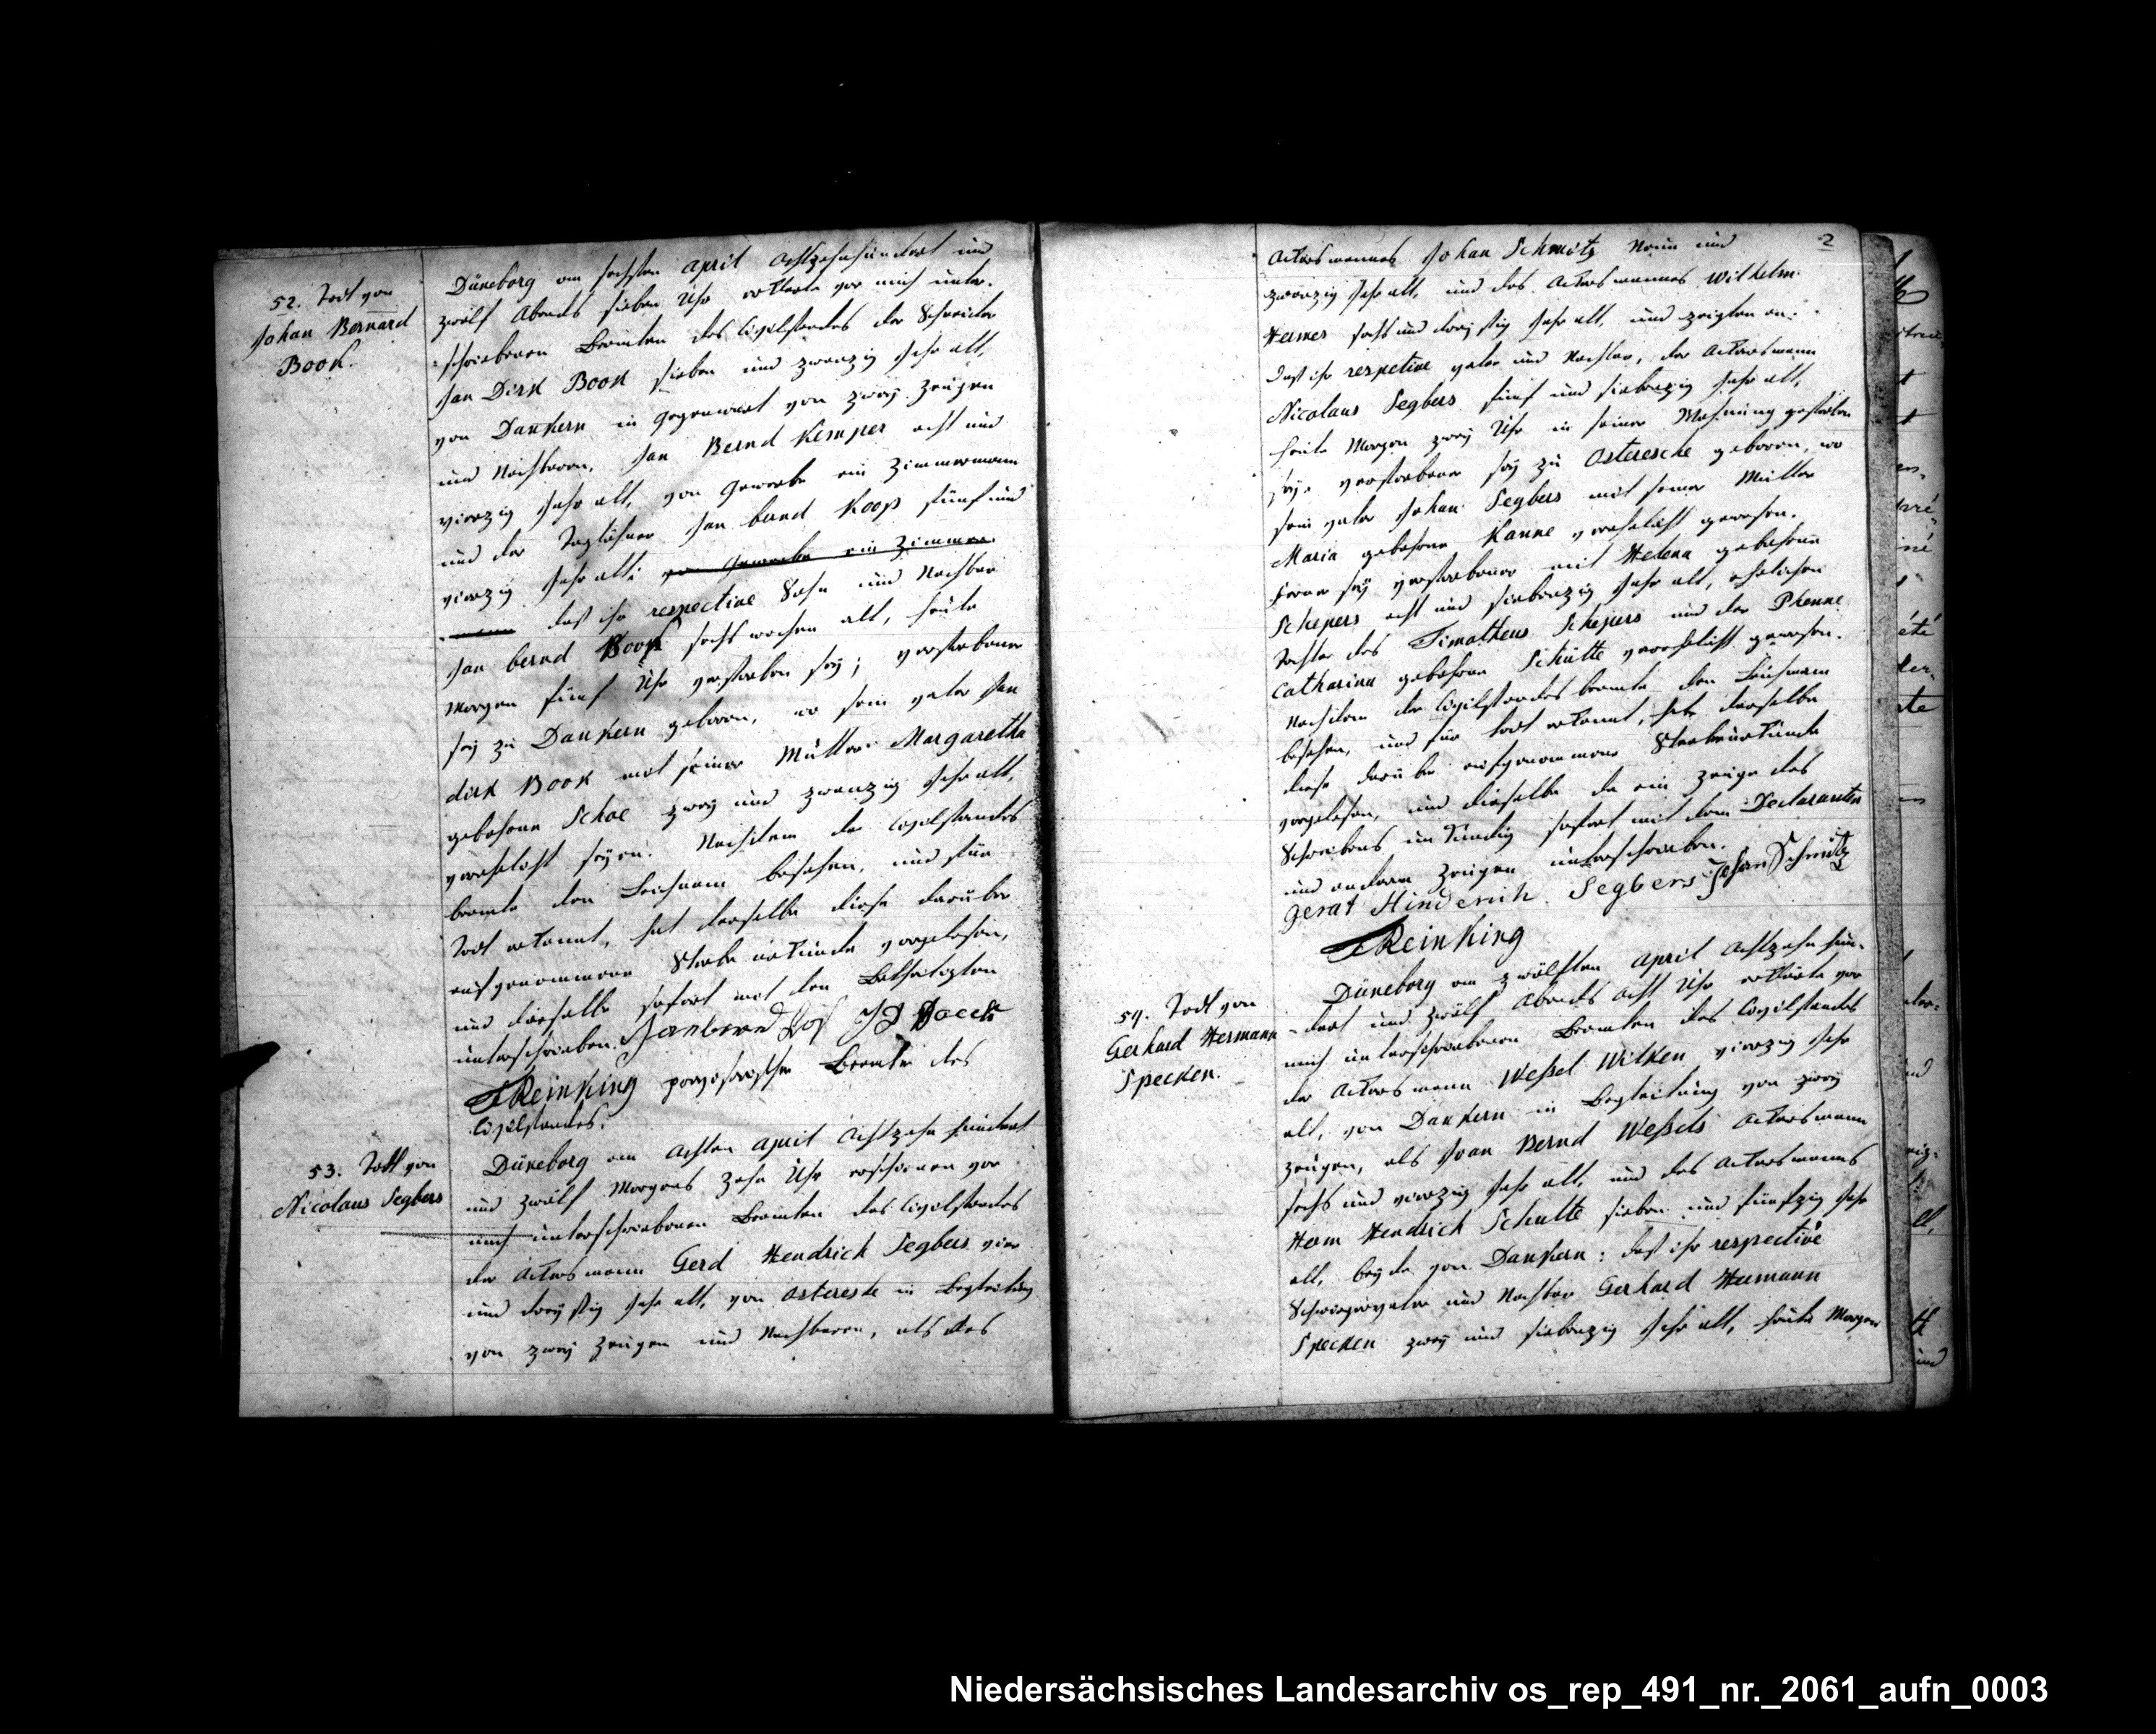 52. Todt von
Johan Bernard
Book.
Düneborg am sechsten April Achtzehnhundert und
zwölf Abends sieben Uhr erklärte vor mich unter-
schriebenen Beamten des Civilstandes der Schneider
Jan Dirk Book sieben und zwanzig Jahr alt,
von Dankern in Gegenwart von zwey Zeugen
und Nachbaren, Jan Bernd Kemper acht und
vierzig Jahr alt, von Gewerbe ein Zimmermann
und der Taglöhner Jan bernd Koop fünf und
vierzig Jahr alt; von Gewerbe ein Zimmer-
mann daß ihr respective Sohn und Nachbar
Jan bernd Book sechs wochen alt, heute
Morgen fünf Uhr verstorben sey; verstorbener
sey zu Dankern geboren, wo sein vater Jan
dirk Book mit seiner Mutter Margaretha
gebohrne Schoe zwey und zwanzig Jahr alt,
verehlicht seyen. Nachdem der Civilstandes
beamte den Leichnam besehen, und für
todt erkannt, hat derselbe diese darüber
aufgenommene Sterbeurkunde vorgelesen,
und dieselbe sofort mit den Betheiligten
unterschrieben. Janbernd JD Boeck
Reinking provisorischer Beamte des
Civilstandes.
53. Todt von
Nicolaus Segbers
Düneborg am Achten April Achtzehn hundert
und zwölf Morgens Zehn Uhr erschienen vor
mich unterschriebenen Beamten des Civilstandes
der Ackersmann Gerd Hendrich Segbers vier
und dreyßig Jahr alt, von Osteresche in Begleitung
von zwey Zeugen und Nachbaren, als des
2
Ackersmannes Johan Schmitz Neun und
zwanzig Jahr alt, und des Ackersmannes Wilhelm
Hermes sechs und dreyßig Jahr alt, und zeigten an:
daß ihr respective vater und Nachbar, der Ackersmann
Nicolaus Segbers fünf und siebenzig Jahr alt,
heute Morgen zwey Uhr in seiner Wohnung gestorben
sey. verstorbener sey zu Osteresche geboren, wo
sein vater Johan Segbers mit seiner Mutter
Maria gebohrne Kanne verehlicht gewesen.
Ferner sey verstorbener mit Helena gebohrne
Schepers acht und siebenzig Jahr alt, ehelichen
Tochter des Timotheus Schepers und der Phenne
Catharina gebohrne Schütte verehelicht gewesen.
Nachdem der Civilstandes beamte den Leichnam
besehen, und für todt erkannt, hat derselbe
diese darüber aufgenommene Sterbeurkunde
vorgelesen, und dieselbe da ein Zeuge des
Schreibens unkundig sofort mit dem Declaranten
und anderen Zeugen unterschrieben.
Gerat Hinderich Segbers Johan Schmitz
Reinking
54. Todt von
Gerhard Hermann
Specken.
Düneborg am zwölften April Achtzehn hun-
dert und zwölf Abends Acht Uhr erklärte vor
mich unterschriebenen Beamten des Civilstandes
der Ackersmann Weßel Wilken vierzig Jahr
alt, von Dankern in Begleitung von zwey
Zeugen, als Joan Bernd Weßels Ackersmann
sechs und vierzig Jahr alt, und des Ackersmanns
Herm Hendrich Schulte sieben und fünfzig Jahr
alt, beyde von Dankern: daß ihr respective
Schwiegervater und Nachbar Gerhard Hermann
Specken zwey und siebenzig Jahr alt, heute Morgen
Niedersächsisches Landesarchiv os_rep_491_nr._2061_aufn_0003